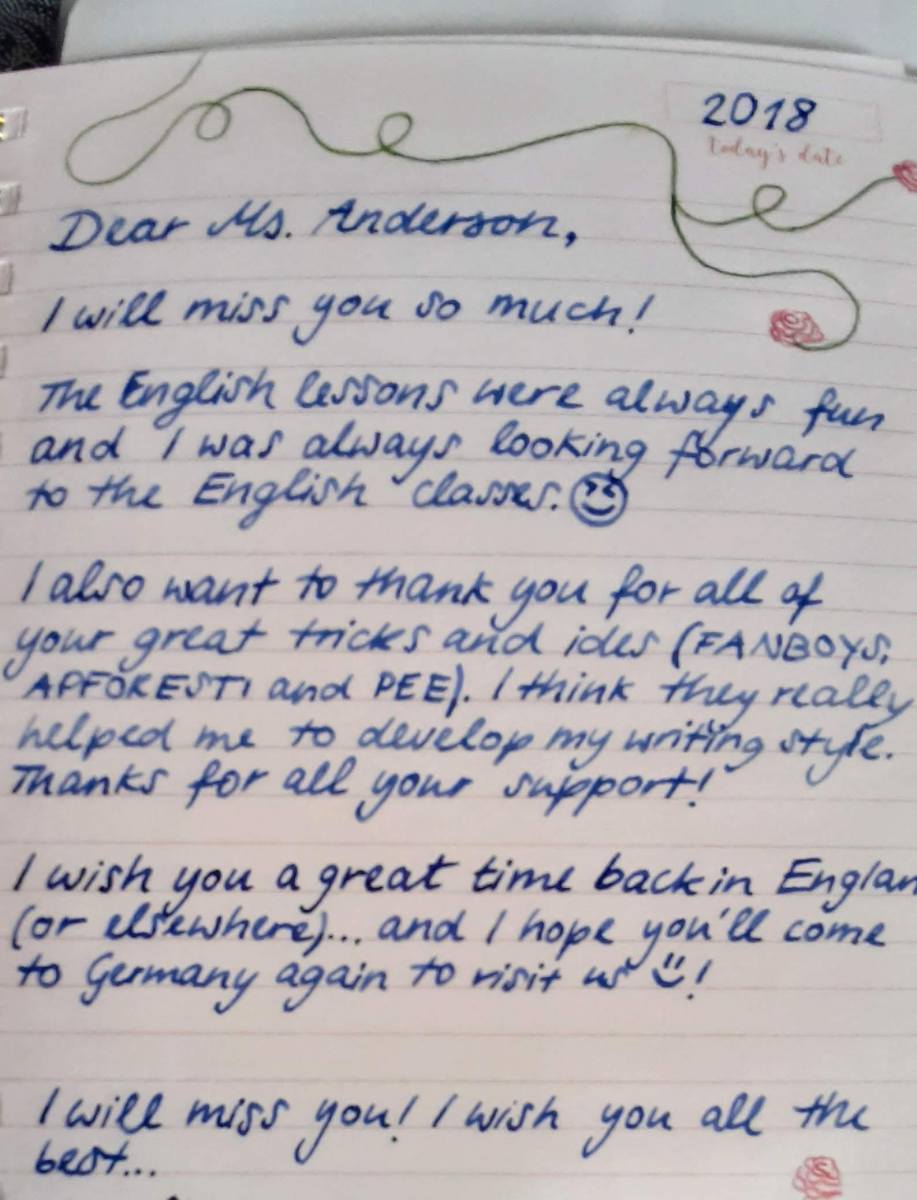 2018
today's date
Dear Ms. Anderson,
I will miss you so much!
The English lessons were always fun
and I was always looking forward
to the English classes.
I also want to thank you for all of
your great tricks and ides (FANBOYS,
AFFORESTI and PEE). I think they really
helped me to develop my writing style.
Thanks for all your support!
I wish you a great time back in Englan
(or elsewhere)... and I hope you'll come
to Germany again to visit us !
I will miss you! I wish you all the
best...